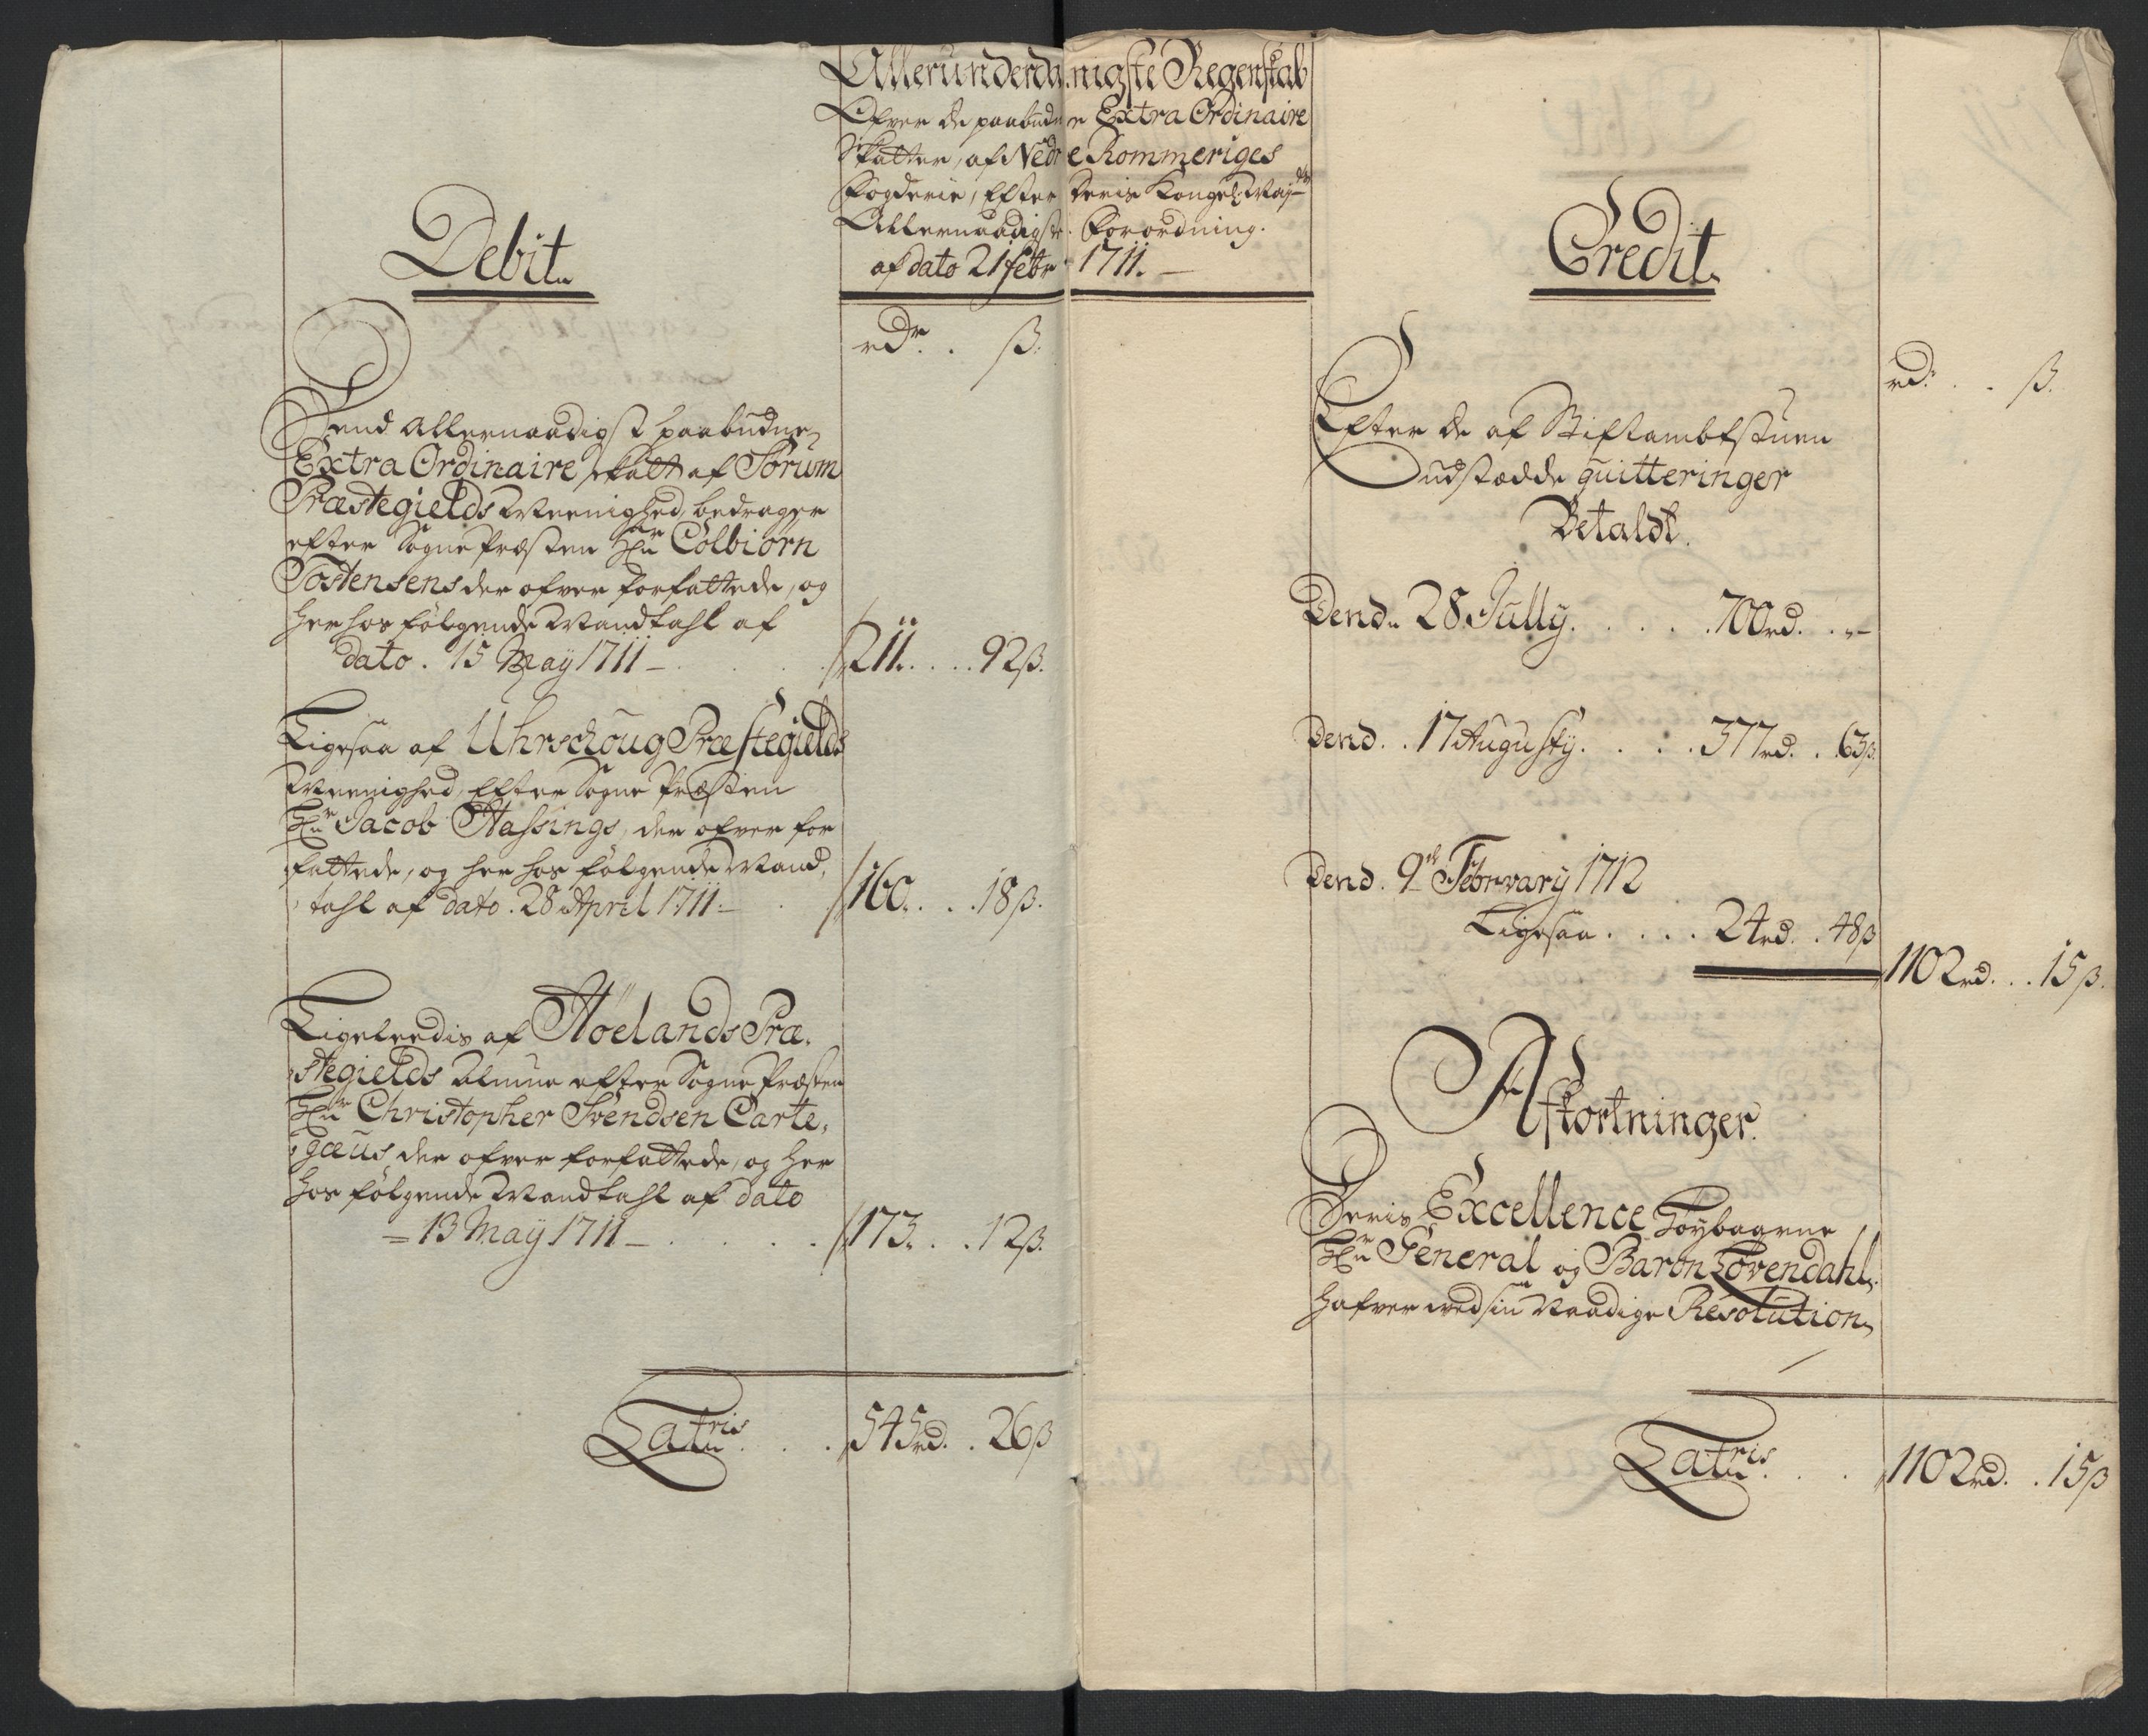 Allerunderdanigste Regenskab
Ofver de paabudne Extra Ordinaire
Skatter, af Nedre Rommeriges
Fogderie, Efter Deris Kongel: May:ts
Allernaadigste Forordning.
af dato 21 febr 1711. –
Debit.
rdr. . ß.
Dend Allernaadigst paabudne
Extra Ordinaire skatt af Sørum
Præstegields Meenighed, bedrager
efter Sogne Præsten Hr Colbiørn
Tostensens der ofver forfattede, og
her hos følgende Mandtahl af
dato. 15 May 1711 – . . . 211. . . . 92ß.
Ligesaa af Uhrschoug Præstegields
Meenighed, Efter Sogne Præsten
Hr Jacob Hassings, der ofver for
fattede, og her hos følgende Mand,
tahl af dato. 28 April 1711 – . 160. . . . 18ß.
Ligeleedis af Høelands Præ,
stegields Almue efter Sogne Præsten
Hr Christopher Svendsen Carte,
gæus der ofver forfattede, og her
hos følgende Mandtahl af dato
– 13 May 1711 – . . . 173. . . 12ß.
Latris . . . 545rd. . 26ß
Credit.
rd. . . ß.
Efter de af Stiftambtstuen
udstædde quitteringer
Betaldt.
Dend. 28. Jully. . . . . 700rd. . „ –
Dend. . 17 Augusty. . . . . 377rd. . 63ß.
Dend. 9de February 1712
Ligesaa . . . . 24rd. . 48ß
1102rd. . . 15ß.
Afkortninger.
Deris Excellence Høybaarne
Hr General og Baron Løvendahl,
hafver ved sin Naadige Resolution,
Latris. . . 1102rd. . 15ß